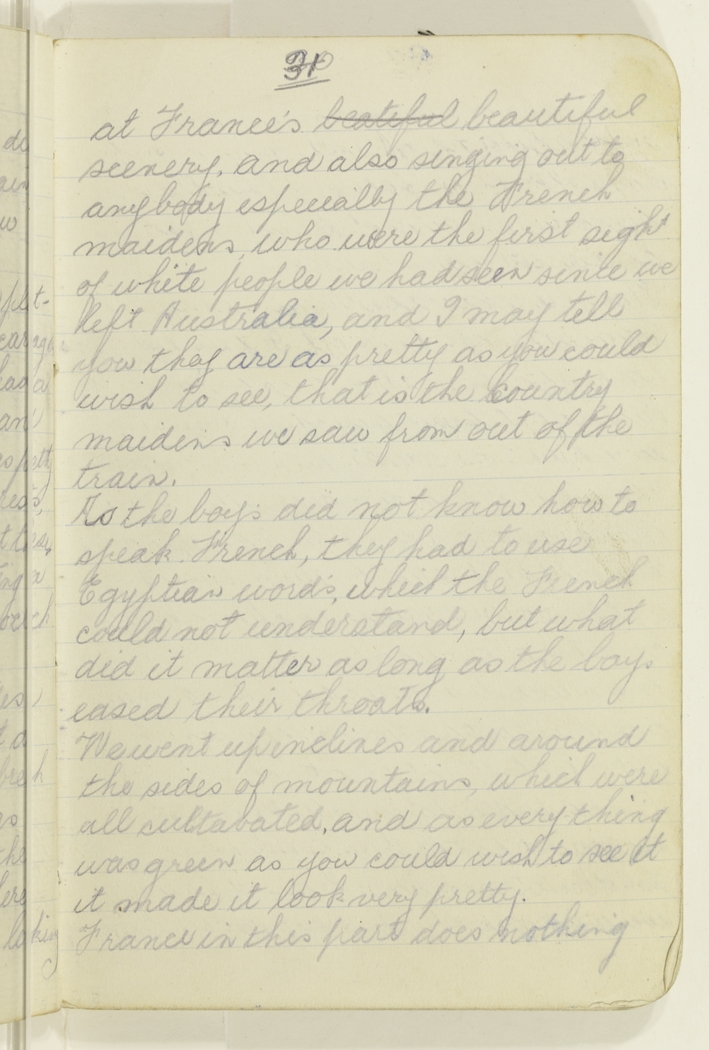 31
at France's beatiful beautiful
scenery. and also singing out to
anybody especially the French
maidens, who were the first sight
of white people we had seen since we
left Australia, and I may tell
you they are as pretty as you could
wish to see, that is the country
maidens we saw from out of the
train.
As the boys did not know how to
speak French, they had to use
Egyptian words, which the French
could not understand, but what
did it matter as long as the boys
eased their throats.
We went up inclines and around
the sides of mountains, which were
all cultavated, and as every thing
was green as you could wish to see it
it made it look very pretty.
France in this part does nothing